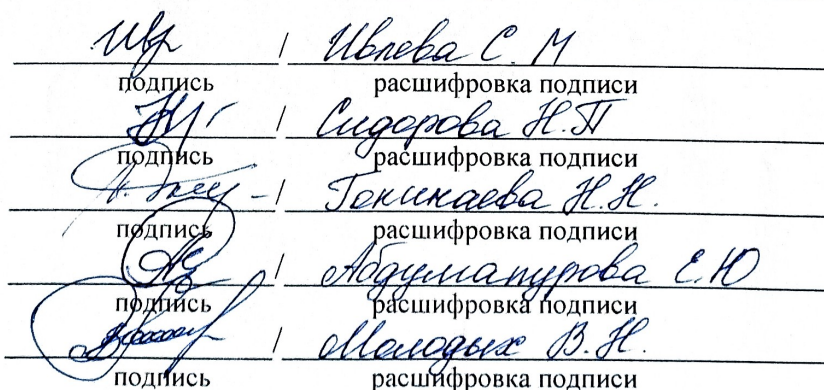 / Ивлева С. М
подпись расшифровка подписи
/ Сидорова Н.П
подпись расшифровка подписи
/ Гокинаева Н.Н.
подпись расшифровка подписи
/ Абдумапурова Е.Ю
подпись расшифровка подписи
/ Молодых В.Н.
подпись расшифровка подписи